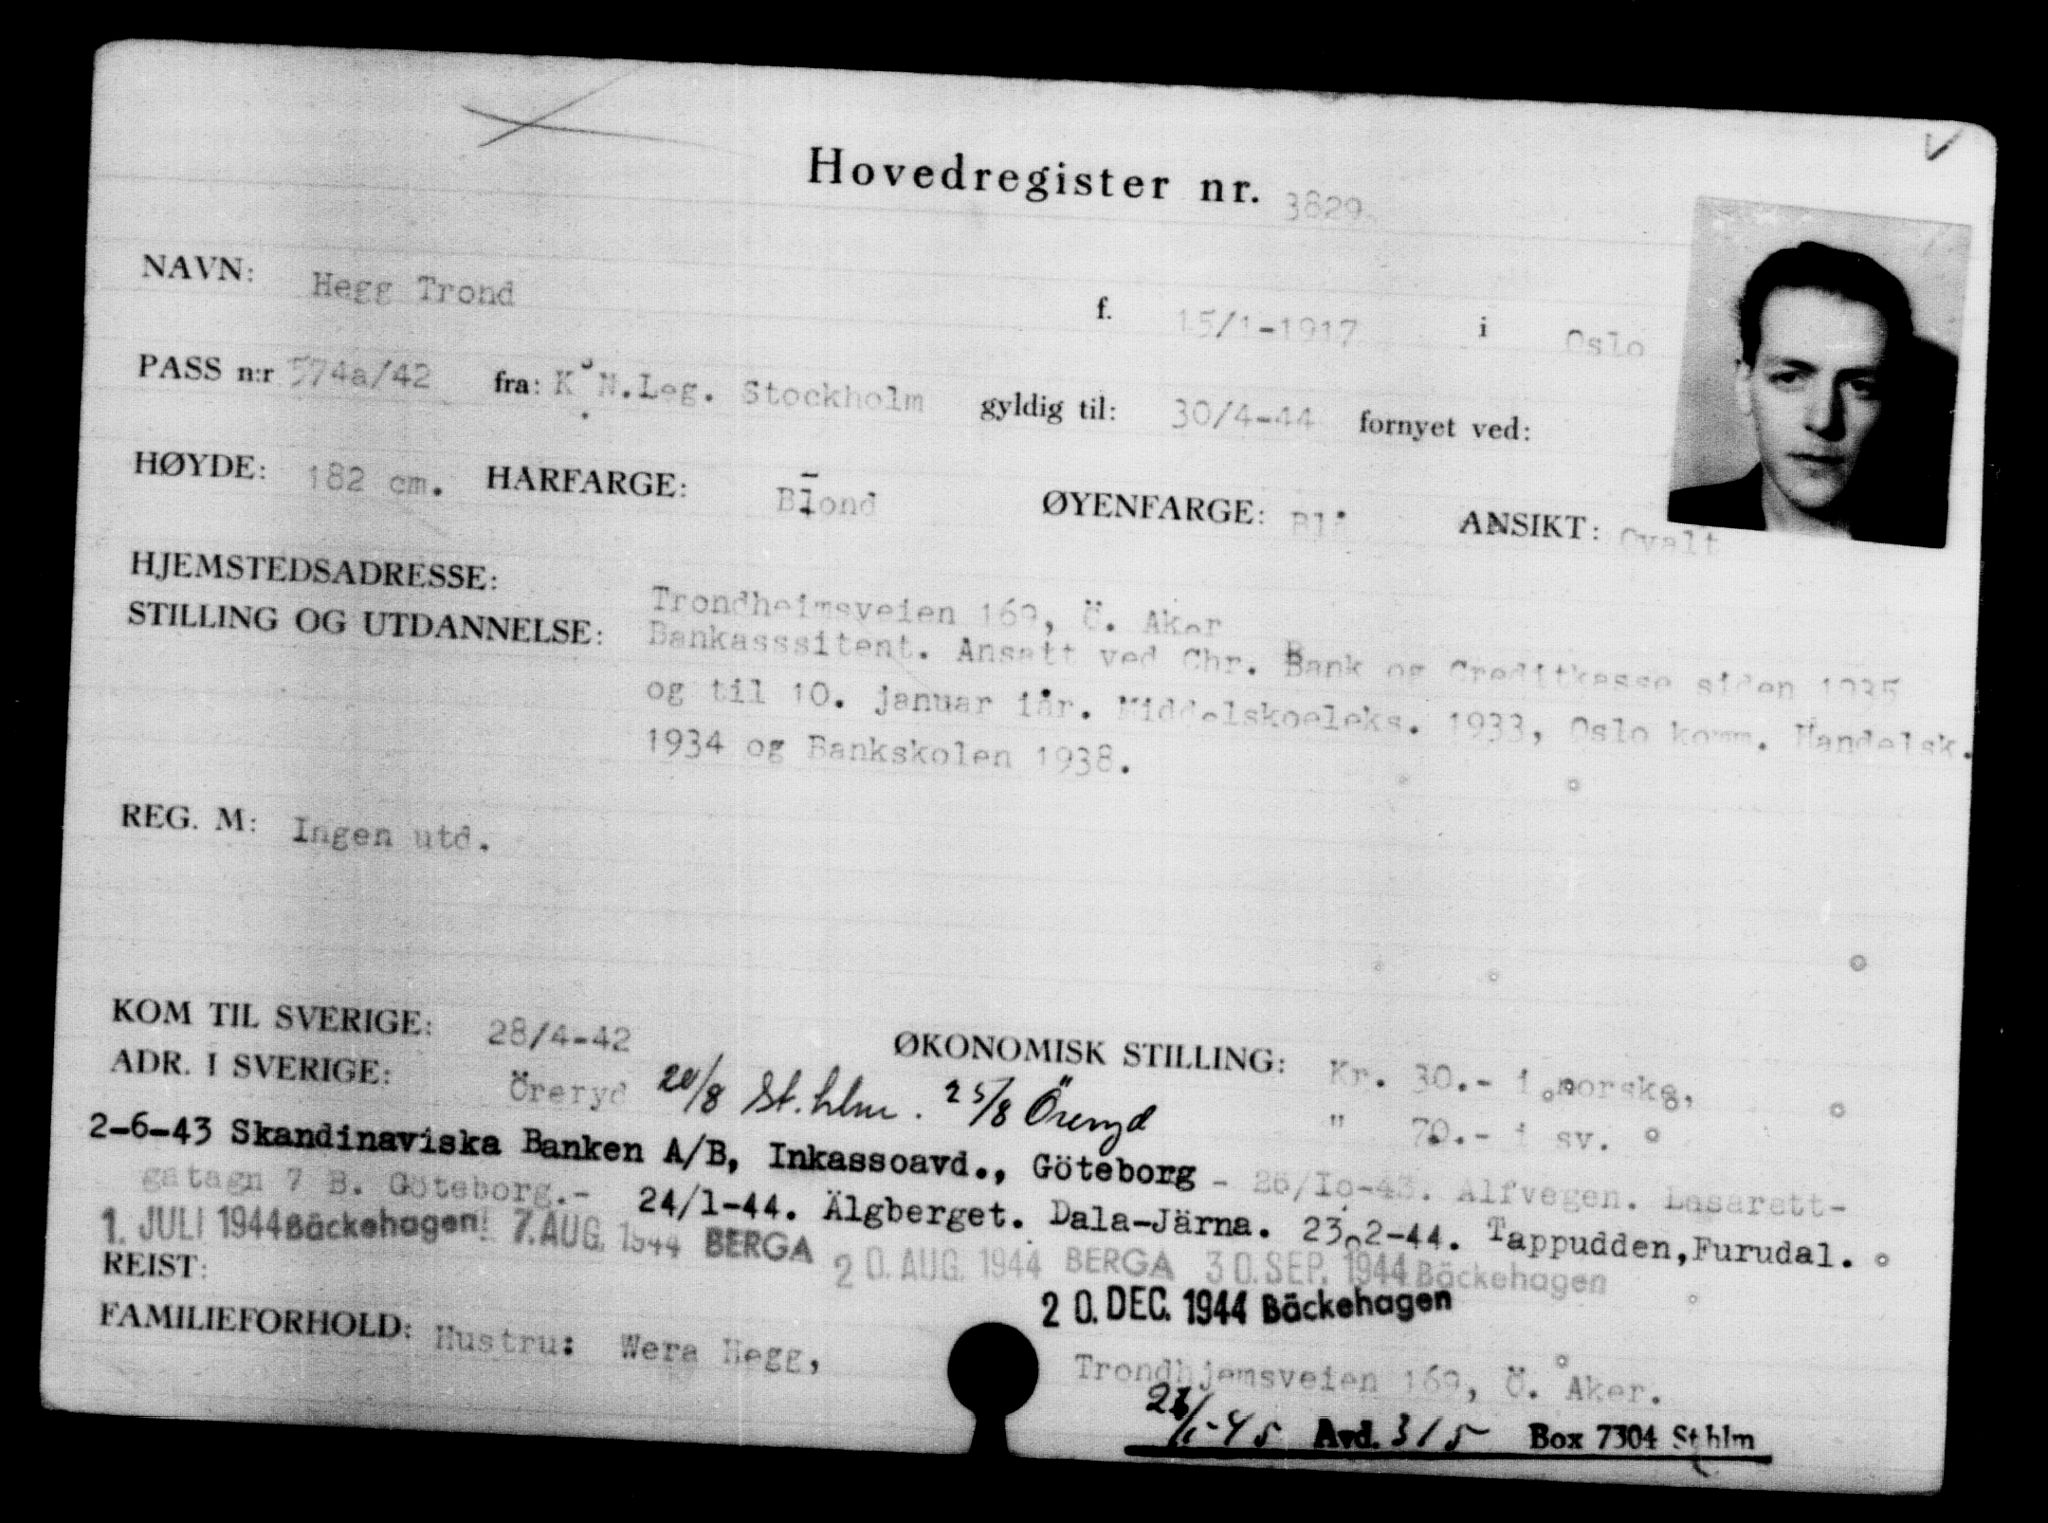 Hovedregister nr. 3829.
NAVN: Hegg Trond f. 15/1-1917 i Oslo
PASS n:r 574a/42 fra: K N.Leg. Stockholm gyldig til: 30/4-44 fornyet ved:
HØYDE: 182 cm. HÅRFARGE: Blond ØYENFARGE: Blå ANSIKT: Ovalt
HJEMSTEDSADRESSE: Trondheimsveien 169, Ö. Aker
STILLING OG UTDANNELSE: Bankasssitent. Ansatt ved Chr. Bank og Creditkasse siden 1935
og til 10. januar iår. Middelskoeleks. 1933, Oslo komm. Handelsk.
1934 og Bankskolen 1938.
REG. M: Ingen utd.
KOM TIL SVERIGE: 28/4-42 ØKONOMISK STILLING: Kr. 30.- i norske,
ADR. I SVERIGE: Öreryd 20/8 St.hlm. 25/8 Öreryd " 70.- i sv.
2-6-43 Skandinaviska Banken A/B, Inkassoavd., Göteborg - 26/10-43. Alfvegen. Lasarett-
gatagn 7 B. Göteborg.- 24/1-44. Älgberget. Dala-Järna. 23.2-44. Tappudden,Furudal.
1. JULI 1944 Bäckehagen! 7. AUG. 1944 BERGA 20. AUG. 1944 BERGA 30. SEP. 1944 Bäckehagen
REIST: 20. DEC. 1944 Bäckehagen
FAMILIEFORHOLD: Hustru: Wera Hegg, Trondhjemsveien 169, Ö. Aker.
/1-45 Avd. 315 Box 7304 Sthlm